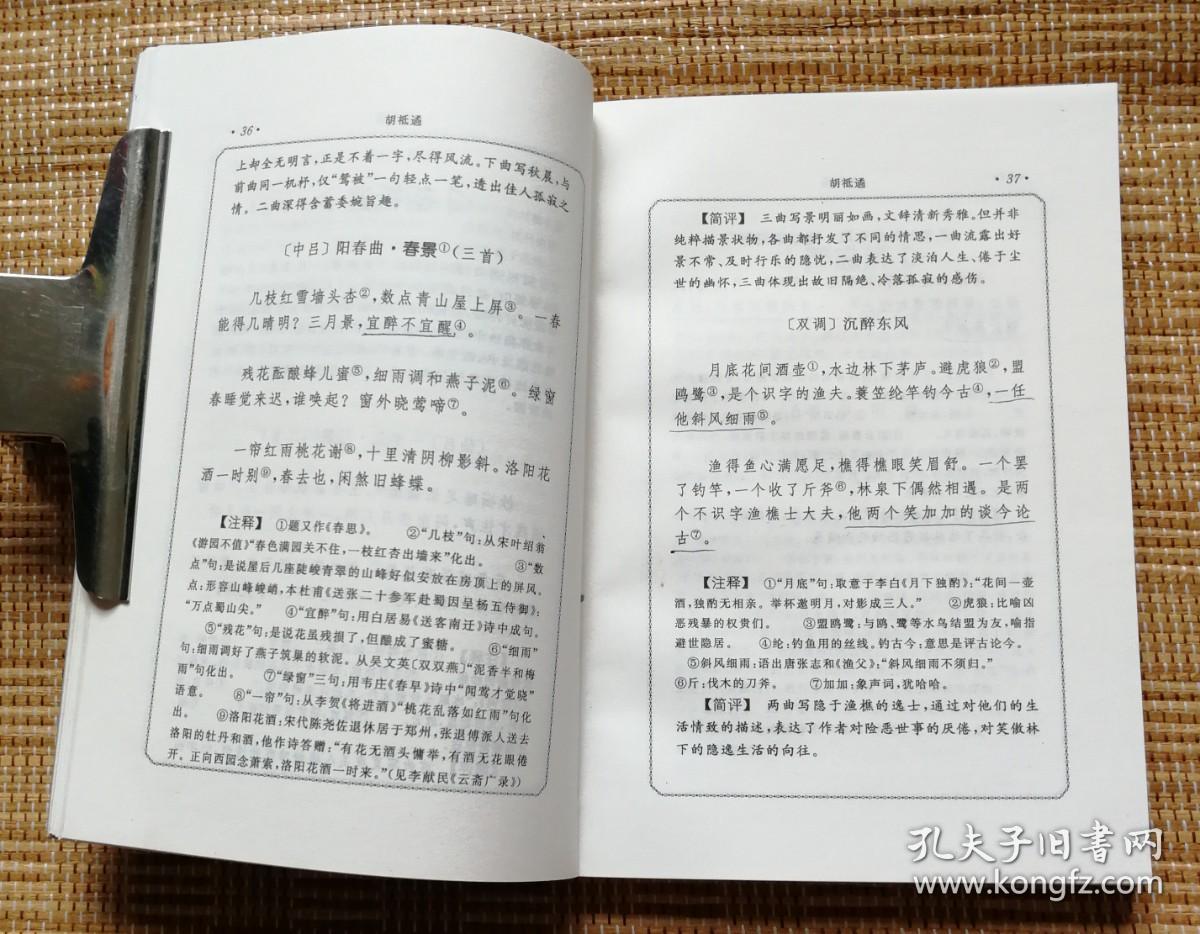 ·36·
胡祗遹
上却全无明言,正是不着一字,尽得风流。下曲写秋晨,与
前曲同一机杼,仅“鸳被”一句轻点一笔,透出佳人孤寂之
情。二曲深得含蓄委婉旨趣。
〔中吕〕阳春曲·春景①(三首)
几枝红雪墙头杏②,数点青山屋上屏③。一春
能得几晴明?三月景,宜醉不宜醒④。
残花酝酿蜂儿蜜⑤,细雨调和燕子泥⑥。绿窗
春睡觉来迟,谁唤起?窗外晓莺啼⑦。
一帘红雨桃花谢⑧,十里清阴柳影斜。洛阳花
酒一时别⑨,春去也,闲煞旧蜂蝶。
【注释】 ①题又作《春思》。 ②“几枝”句:从宋叶绍翁
《游园不值》“春色满园关不住,一枝红杏出墙来”化出。 ③“数
点”句:是说屋后几座陡峻青翠的山峰好似安放在房顶上的屏风。
点:形容山峰峻峭,本杜甫《送张二十参军赴蜀因呈杨五侍御》:
“万点蜀山尖。” ④“宜醉”句:用白居易《送客南迁》诗中成句。
⑤“残花”句:是说花虽残损了,但酿成了蜜糖。 ⑥“细雨”
句:细雨调好了燕子筑巢的软泥。从吴文英〔双双燕〕“泥香半和梅
雨”句化出。 ⑦“绿窗”三句:用韦庄《春早》诗中“闻莺才觉晓”
语意。 ⑧“一帘”句:从李贺《将进酒》“桃花乱落如红雨”句化
出。 ⑨洛阳花酒:宋代陈尧佐退休居于郑州,张退傅派人送去
洛阳的牡丹和酒,他作诗答赠:“有花无酒头慵举,有酒无花眼倦
开。正向西园念萧索,洛阳花酒一时来。”(见李献民《云斋广录》)
胡祗遹
·37·
【简评】 三曲写景明丽如画,文辞清新秀雅。但并非
纯粹描景状物,各曲都抒发了不同的情思,一曲流露出好
景不常、及时行乐的隐忧,二曲表达了淡泊人生、倦于尘
世的幽怀,三曲体现出故旧隔绝、冷落孤寂的感伤。
〔双调〕沉醉东风
月底花间酒壶①,水边林下茅庐。避虎狼②,盟
鸥鹭③,是个识字的渔夫。蓑笠纶竿钓今古④,一任
他斜风细雨⑤。
渔得鱼心满愿足,樵得樵眼笑眉舒。一个罢
了钓竿,一个收了斤斧⑥,林泉下偶然相遇。是两
个不识字渔樵士大夫,他两个笑加加的谈今论
古⑦。
【注释】 ①“月底”句:取意于李白《月下独酌》:“花间一壶
酒,独酌无相亲。举杯邀明月,对影成三人。” ②虎狼:比喻凶
恶残暴的权贵们。 ③盟鸥鹭:与鸥、鹭等水鸟结盟为友,喻指
避世隐居。 ④纶:钓鱼用的丝线。钓古今:意思是评古论今。
⑤斜风细雨:语出唐张志和《渔父》:“斜风细雨不须归。”
⑥斤:伐木的刀斧。 ⑦加加:象声词,犹哈哈。
【简评】 两曲写隐于渔樵的逸士,通过对他们的生
活情致的描述,表达了作者对险恶世事的厌倦,对笑傲林
下的隐逸生活的向往。
孔夫子旧书网
www.kongfz.com